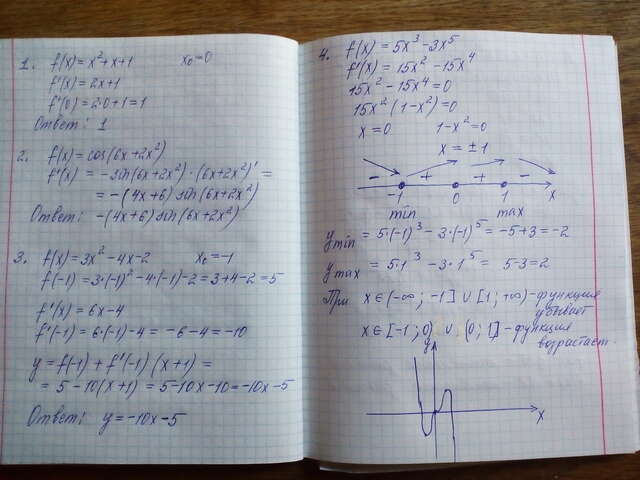 1. f(x) = x² + x + 1   x₀ = 0
f'(x) = 2x + 1
f'(0) = 2·0 + 1 = 1
Ответ: 1
2. f(x) = cos(6x + 2x²)
f'(x) = -sin(6x + 2x²)·(6x + 2x²)' =
= -(4x + 6) sin(6x + 2x²)
Ответ: -(4x + 6) sin(6x + 2x²)
3. f(x) = 3x² - 4x - 2   x₀ = -1
f(-1) = 3·(-1)² - 4·(-1) - 2 = 3 + 4 - 2 = 5
f'(x) = 6x - 4
f'(-1) = 6·(-1) - 4 = -6 - 4 = -10
y = f(-1) + f'(-1)(x + 1) =
= 5 - 10(x + 1) = 5 - 10x - 10 = -10x - 5
Ответ: y = -10x - 5
4. f(x) = 5x³ - 3x⁵
f'(x) = 15x² - 15x⁴
15x² - 15x⁴ = 0
15x²(1 - x²) = 0
x = 0   1 - x² = 0
x = ±1
- + + -
-1 0 1 x
min max
y min = 5·(-1)³ - 3·(-1)⁵ = -5 + 3 = -2
y max = 5·1³ - 3·1⁵ = 5 - 3 = 2
При x ∈ (-∞; -1] ∪ [1; +∞) - функция
убывает
x ∈ [-1; 0) ∪ (0; 1] - функция
возрастает.
y
x